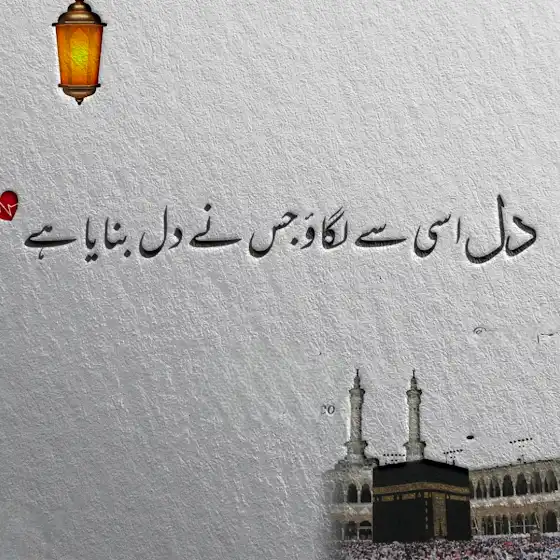 دل اسی سے لگاؤ جس نے دل بنایا ہے